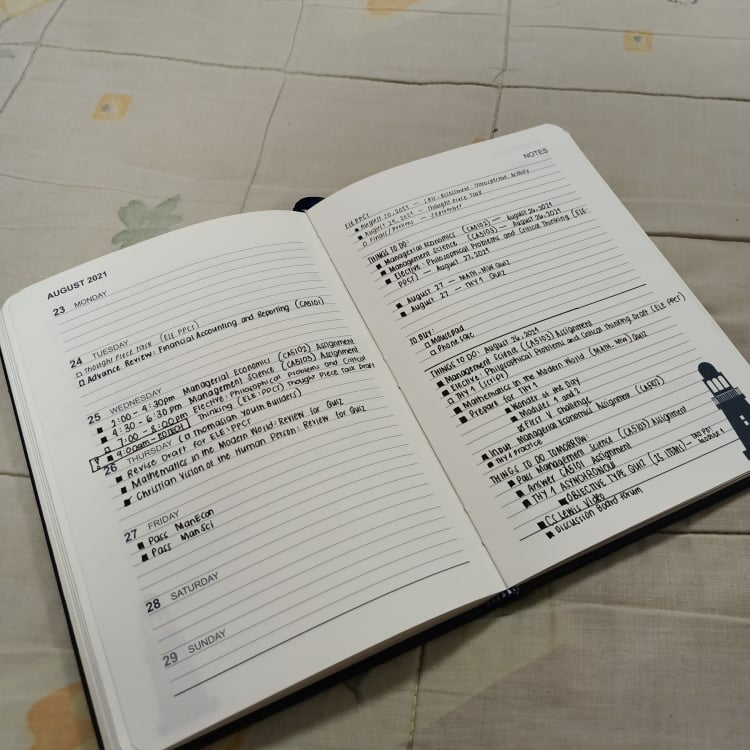 AUGUST 2021
23 MONDAY
24 TUESDAY
Thought Piece Talk (ELE PPCT)
Advance Review: Financial Accounting and Reporting (CA5101)
25 WEDNESDAY
2:00 - 4:30pm Managerial Economics (CA5102) Assignment
4:30 - 6:30pm Management Science (CA5103) Assignment
7:00 - 8:00pm Elective: Philosophical Problems and Critical
Thinking (ELE: PPCT) Thought Piece Talk Draft
9:00am - (Thomasian Youth Builders)
26 THURSDAY
Revise Draft for ELE: PPCT
Mathematics in the Modern World: Review for Quiz
Christian Vision of the Human Person: Review for Quiz
27 FRIDAY
Pass ManEcon
Pass ManSci
28 SATURDAY
29 SUNDAY
NOTES
ELE PPCT
August 20, 2021 — Activity
August 25, 2021 — Thought Piece Talk
Finals/Prelims — September
THINGS TO DO:
Managerial Economics (CA5102) — August 26, 2021
Management Science (CA5103) — August 26, 2021
Elective: Philosophical Problems and Critical Thinking (ELE:
PPCT) — August 27, 2021
August 27 — MATH-MW QUIZ
August 27 — THY 1 QUIZ
TO BUY:
Mousepad
Phone case
THINGS TO DO: August 26, 2021
Management Science (CA5103) Assignment
Elective: Philosophical Problems and Critical Thinking Draft (ELE PPCT)
THY 1 (SCRIPT)
Mathematics in the Modern World (MATH-MW) Quiz
Prepare for THY 1
Wonder of the Day
Module 1 and 2
Challenge
Input Managerial Economics Assignment (CA5102)
THY 1 Practice
THINGS TO DO TOMORROW:
Pass Management Science (CA5103) Assignment
Answer CA5101 Assignment
THY 1 ASYNCHRONOUS
OBJECTIVE TYPE QUIZ (25 ITEMS) -
Module 1
CS Lewis Video
Discussion Board Forum